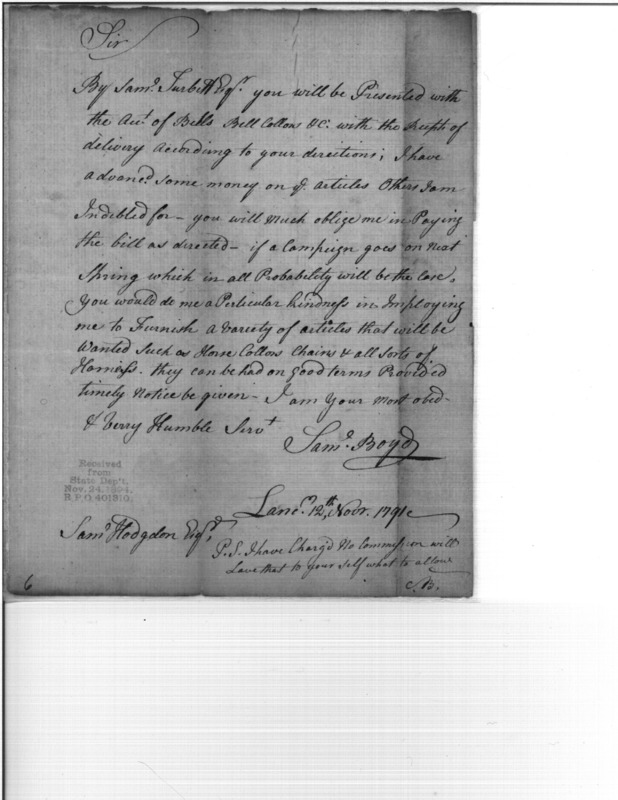 Sir
By Sam.l Turbett Esq.r you will be Presented with
the Acc.t of Bells Bell Collors &C. with the Receipts of
delivery According to your directions; I have
advanc.d some money on y.e articles Others I am
Indebted for – you will Much oblige me in Paying
the bill as directed – if a Campaign goes on next
Spring which in all Probability will be the Case,
You would do me a Perticular kindness in Imploying
me to Furnish a variety of articles that will be
Wanted Such as Horse Collors Chains & all sorts of
Harniss. they can be had on Good terms Provided
timely Notice be given – I am Your Most obed.
& Verry Humble Serv.t
Sam.l Boyd
Received
from
State Dep't.
Nov. 24, 1894.
R.P.O. 401310.
Lanc.r 12th, Novr. 1791
Sam.l Hodgdon Esq.r
P.S. I have Charg'd No Commission will
Lave that to your Self what to allow
S.B.
6